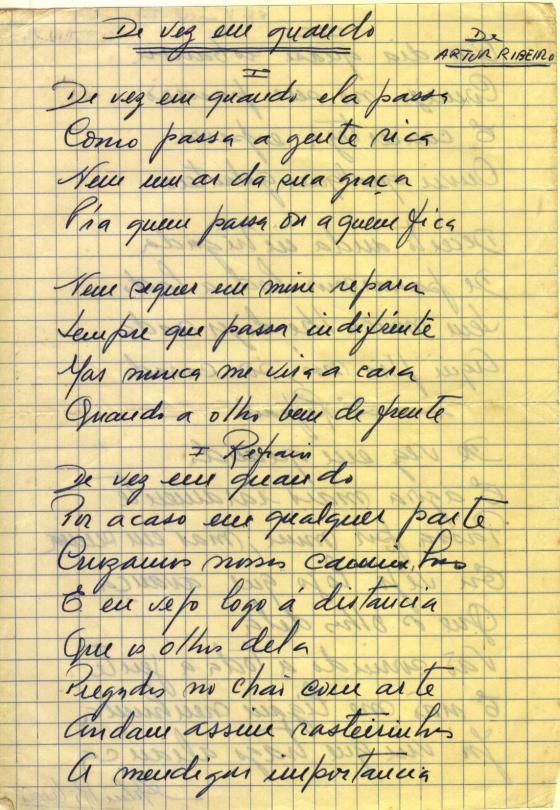 De vez em quando
De
ARTUR RIBEIRO
I
De vez em quando ela passa
Como passa a gente rica
Nem um ar da sua graça
P'ra quem passa ou a quem fica
Nem sequer em mim repara
Sempre que passa indifrente
Mas nunca me vira a cara
Quando a olho bem de frente
I Refrain
De vez em quando
Por acaso em qualquer parte
Cruzamos nossos caminhos
E eu vejo logo á distancia
Que os olhos dela
Pregados no chão com arte
Andam assim rasteirinhos
A mendigar importancia